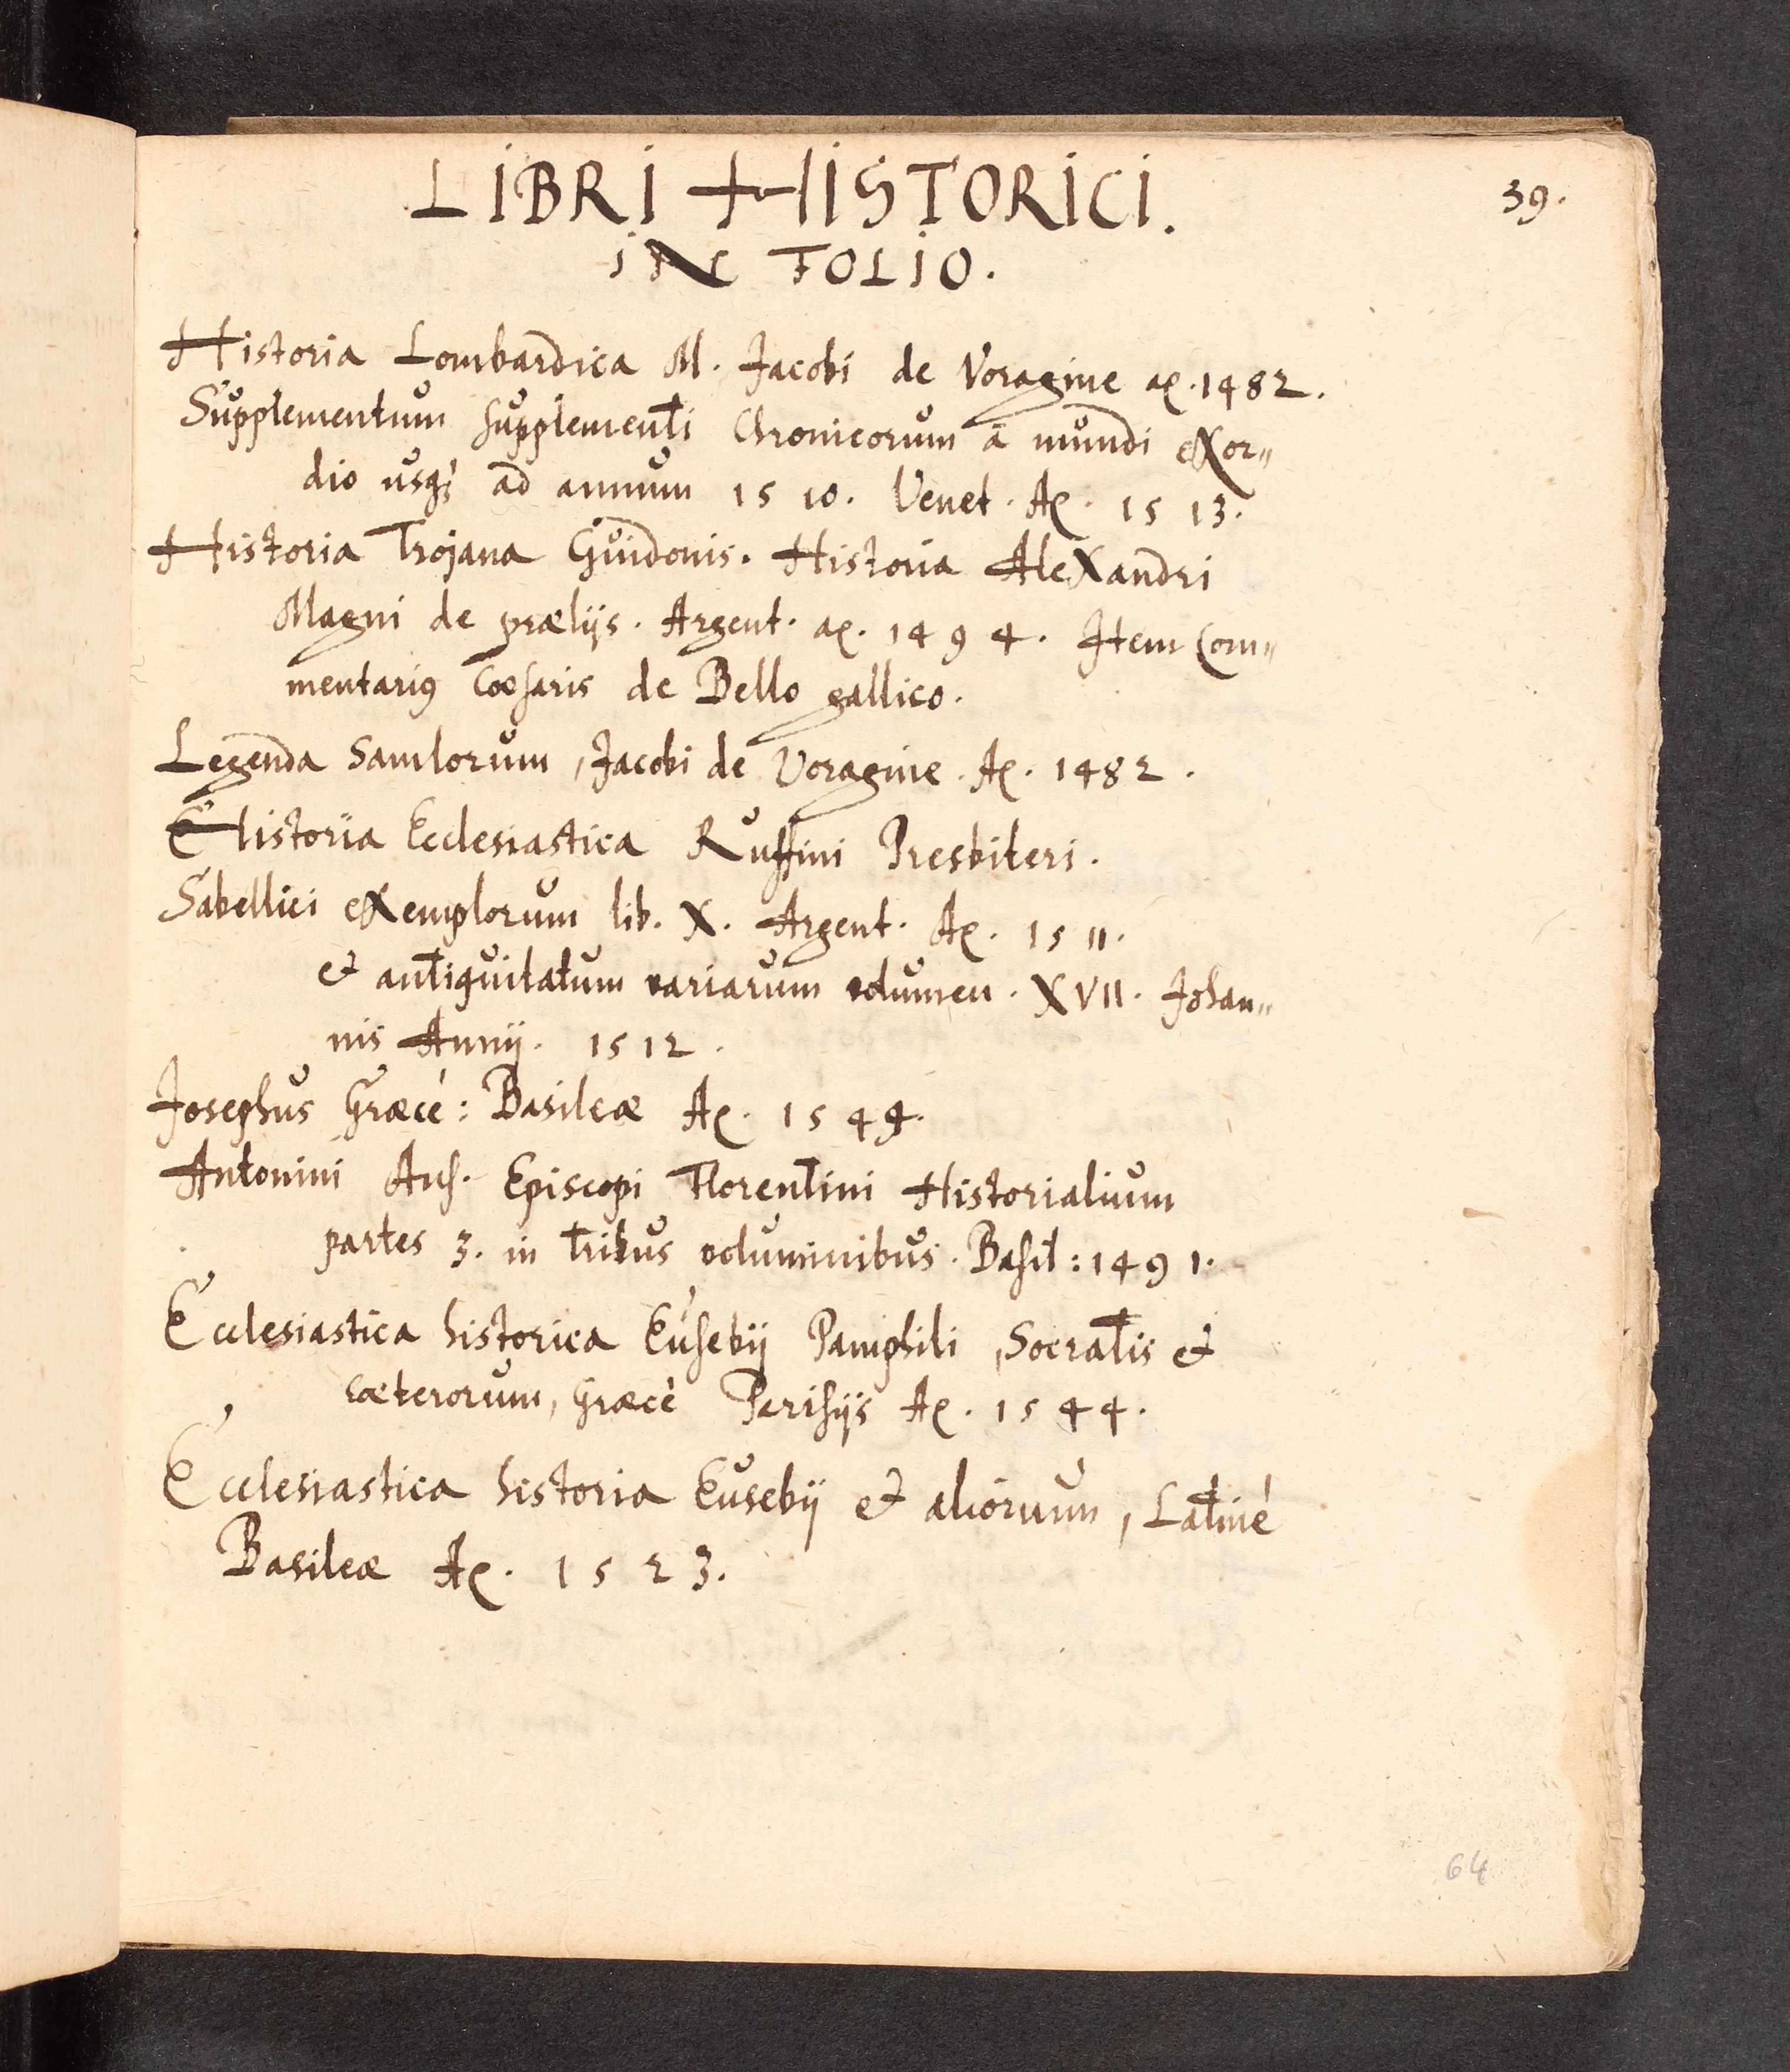 LIBRI HISTORICI.
39.
IN FOLIO.
Historia Lombardica M. Jacobi de Voragine aõ. 1482.
Supplementum supplementi Chronicorum à mundi exor„
dio usq; ad annum 1510. Venet. Aõ. 1513.
Historia Trojana Guidonis. Historia Alexandri
Magni de prælijs. Argent. aõ. 1494. Item Com„
mentariꝰ Cæsaris de Bello gallico.
Legenda Sanctorum, Jacobi de Voragine. Aõ. 1482.
Historia Ecclesiastica Ruffini Presbiteri.
Sabellici exemplorum lib. X. Argent. Aõ. 1511.
et antiquitatum variarum volumen. XVII. Johan„
nis Annij. 1512.
Josephus Græcè: Basileæ Aõ. 1544.
Antonini Episcopi Florentini Historialium
partes 3. in tribus voluminibus. Basil: 1491.
Ecclesiastica historica Eusebij Pamphili, Socratis et
cæterorum, Græcè Parisijs Aõ. 1544.
Ecclesiastica historia Eusebij et aliorum, Latinè
Basileæ Aõ. 1523.
64